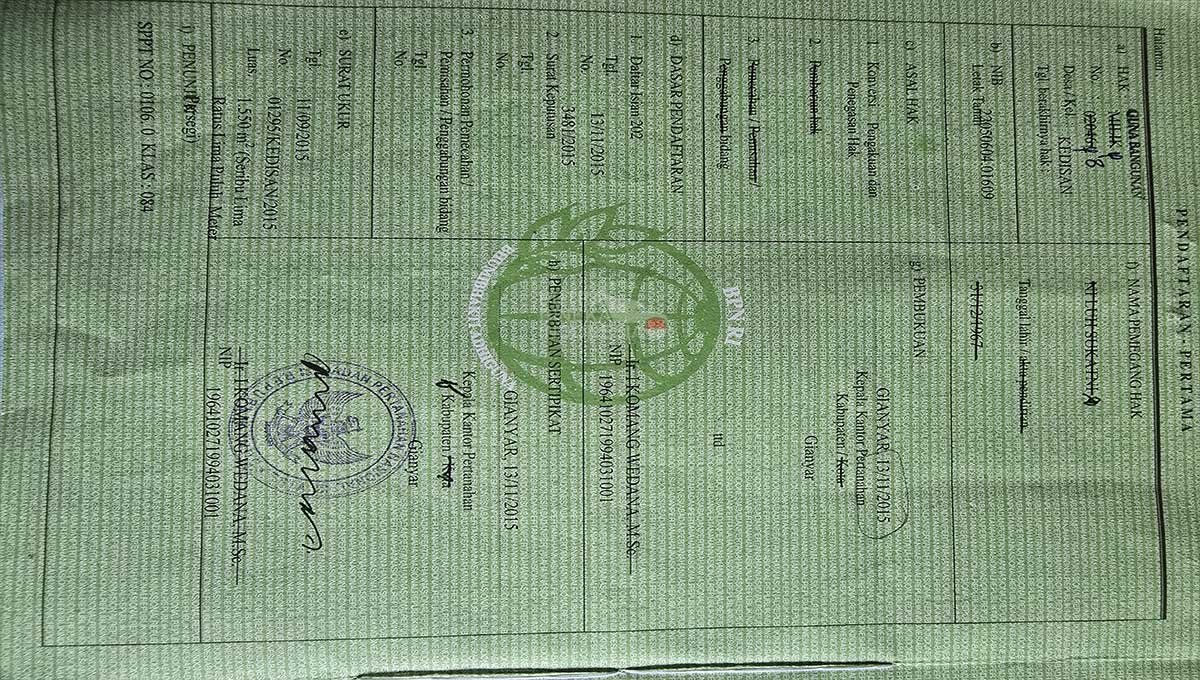 PENDAFTARAN - PERTAMA
Halaman:
a) HAK
GUNA BANGUNAN
MILIK
No. :
8
Desa / Kel. KEDISAN
Tgl. berakhirnya hak :
b) NIB 22.05.06.04.01609
Letak Tanah
c) ASAL HAK
1. Konversi Pengakuan dan
Penegasan Hak
2. Pemberian hak
3. Pemecahan / Pemisahan /
Penggabungan bidang
d) DASAR PENDAFTARAN
1. Daftar Isian 202
Tgl. 13/11/2015
No.
2. Surat Keputusan 3481/2015
Tgl.
No.
3. Permohonan Pemecahan /
Pemisahan / Penggabungan bidang
Tgl.
No.
e) SURAT UKUR
Tgl. 11/09/2015
No. 01295/KEDISAN/2015
Luas. 1.550 m² (Seribu Lima
Ratus Lima Puluh Meter
Persegi)
f) NAMA PEMEGANG HAK
NI LUH SUKATMI
Tanggal lahir / akta pendirian
31/12/1967
g) PEMBUKUAN
GIANYAR, 13/11/2015
Kepala Kantor Pertanahan
Kabupaten / Kota
Gianyar
ttd
Ir. I KOMANG WEDANA, M.Sc.
NIP 196410271994031001
h) PENERBITAN SERTIPIKAT
GIANYAR, 13/11/2015
Kepala Kantor Pertanahan
Kabupaten / Kota
Gianyar
BADAN PERTANAHAN NASIONAL
Ir. I KOMANG WEDANA, M.Sc.
NIP 196410271994031001
i) PENUNJUK
SPPT NO : 0106. 0 KLAS : 084
BPN RI